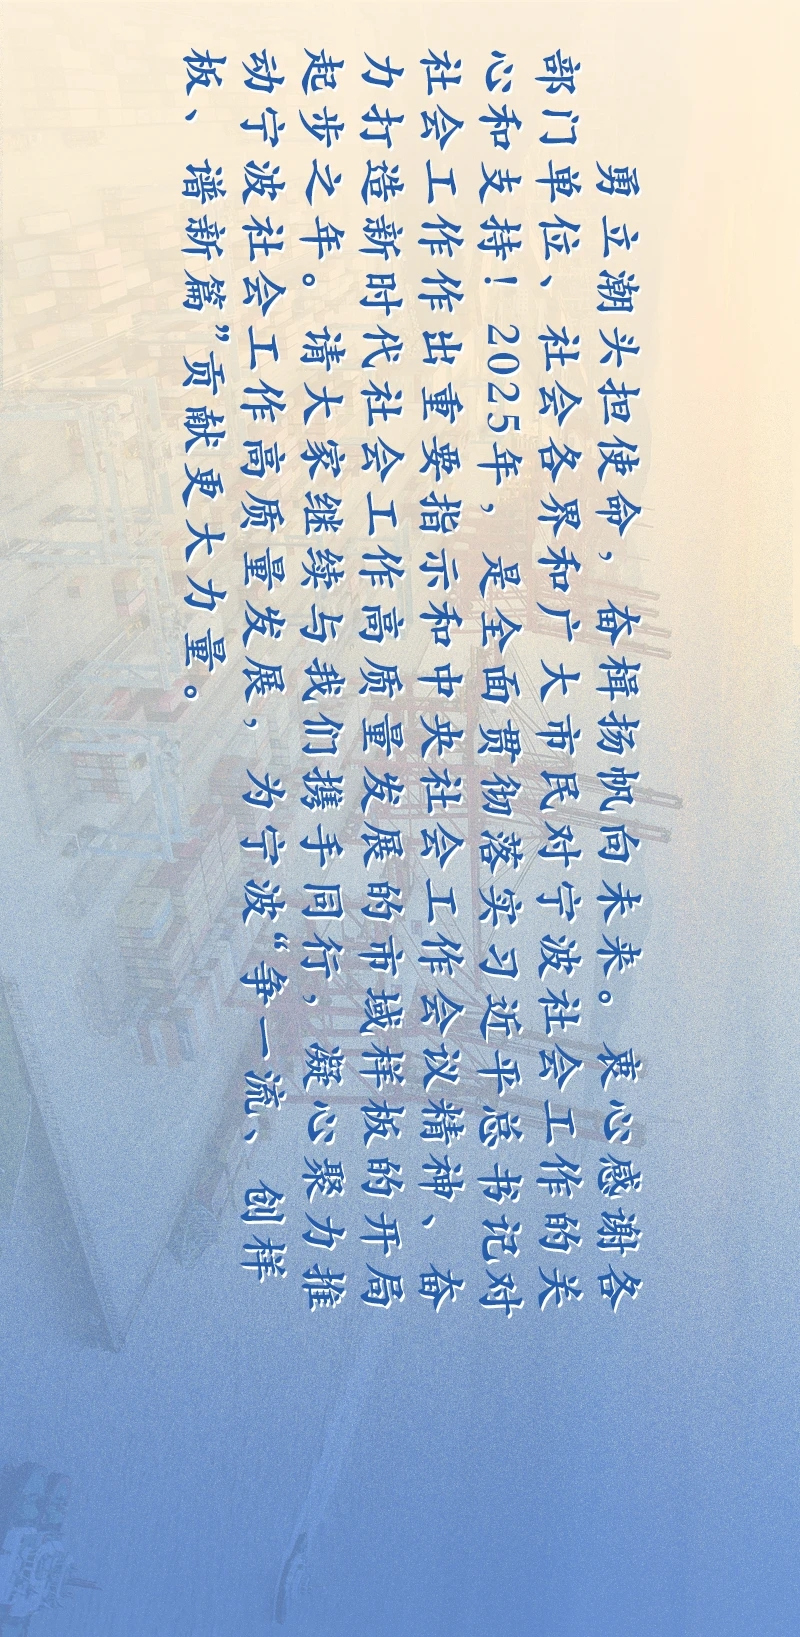 勇立潮头担使命，奋楫扬帆向未来。衷心感谢各
部门单位、社会各界和广大市民对宁波社会工作的关
心和支持！2025年，是全面贯彻落实习近平总书记对
社会工作作出重要指示和中央社会工作会议精神、奋
力打造新时代社会工作高质量发展的市域样板的开局
起步之年。请大家继续与我们携手同行，凝心聚力推
动宁波社会工作高质量发展，为宁波“争一流、创样
板、谱新篇”贡献更大力量。